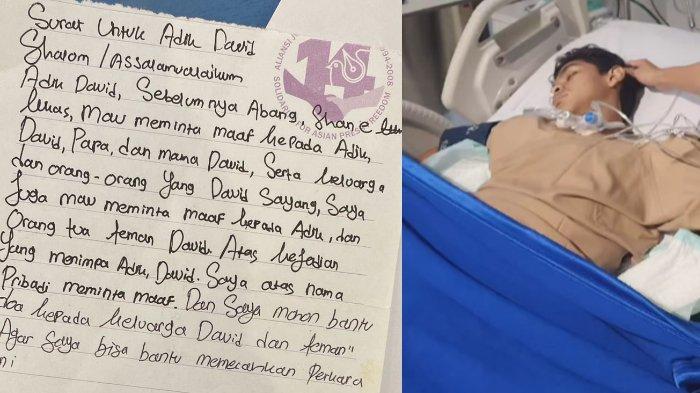 Surat Untuk Adik David
Shalom / Assalamualaikum
Adik David, Sebelumnya Abang, Shane
Lukas, Mau meminta maaf kepada Adik,
David, Papa, dan mama David, Serta keluarga
dan orang-orang Yang David Sayang, Saya
Juga mau meminta maaf kepada Adik, dan
Orang tua teman David. Atas kejadian
Yang menimpa Adik, David. Saya atas nama
Pribadi meminta maaf. Dan Saya mohon bantu
doa kepada keluarga David dan teman"
Agar Saya bisa bantu memecahkan Perkara
ni
ALIANSI J
1994-2008
SOLIDAR
FOR ASIAN PRESS FREEDOM
14